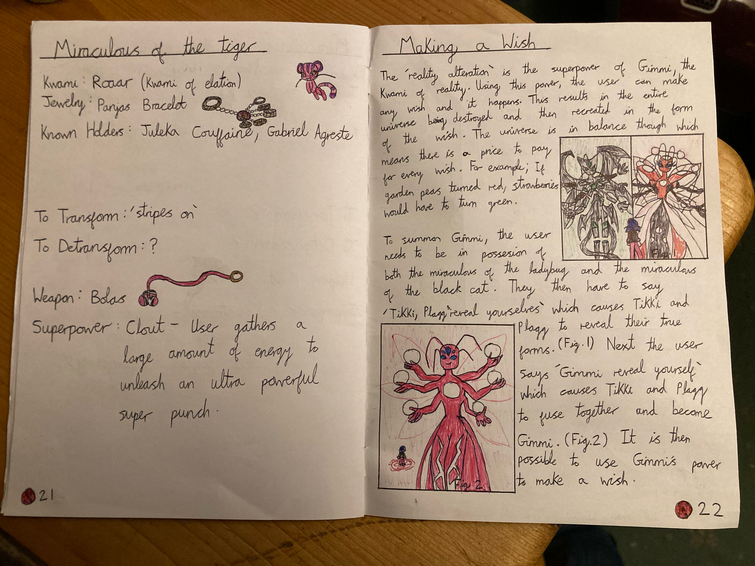 Miraculous of the tiger
Kwami: Roaar (Kwami of elation)
Jewelry: Panjas Bracelet
Known Holders: Juleka Couffaine, Gabriel Agreste
To Transform: 'stripes on'
To Detransform: ?
Weapon: Bolas
Superpower: Clout - User gathers a
large amount of energy to
unleash an ultra powerful
super punch.
21
Making a Wish
The 'reality alteration' is the superpower of Gimmi, the
Kwami of reality. Using this power, the user can make
any wish and it happens. This results in the entire
universe being destroyed and then recreated in the form
of the wish. The universe is in balance though which
means there is a price to pay
for every wish. For example; If
garden peas turned red, strawberries
would have to turn green.
To summon Gimmi, the user
needs to be in possesion of
both the miraculous of the ladybug and the miraculous
of the black cat. They then have to say
'Tikki, Plagg reveal yourselves' which causes Tikki and
Plagg to reveal their true
forms. (Fig. 1) Next the user
says 'Gimmi reveal yourself'
which causes Tikki and Plagg
to fuse together and become
Gimmi. (Fig. 2) It is then
possible to use Gimmi's power
to make a wish.
Fig 2
22